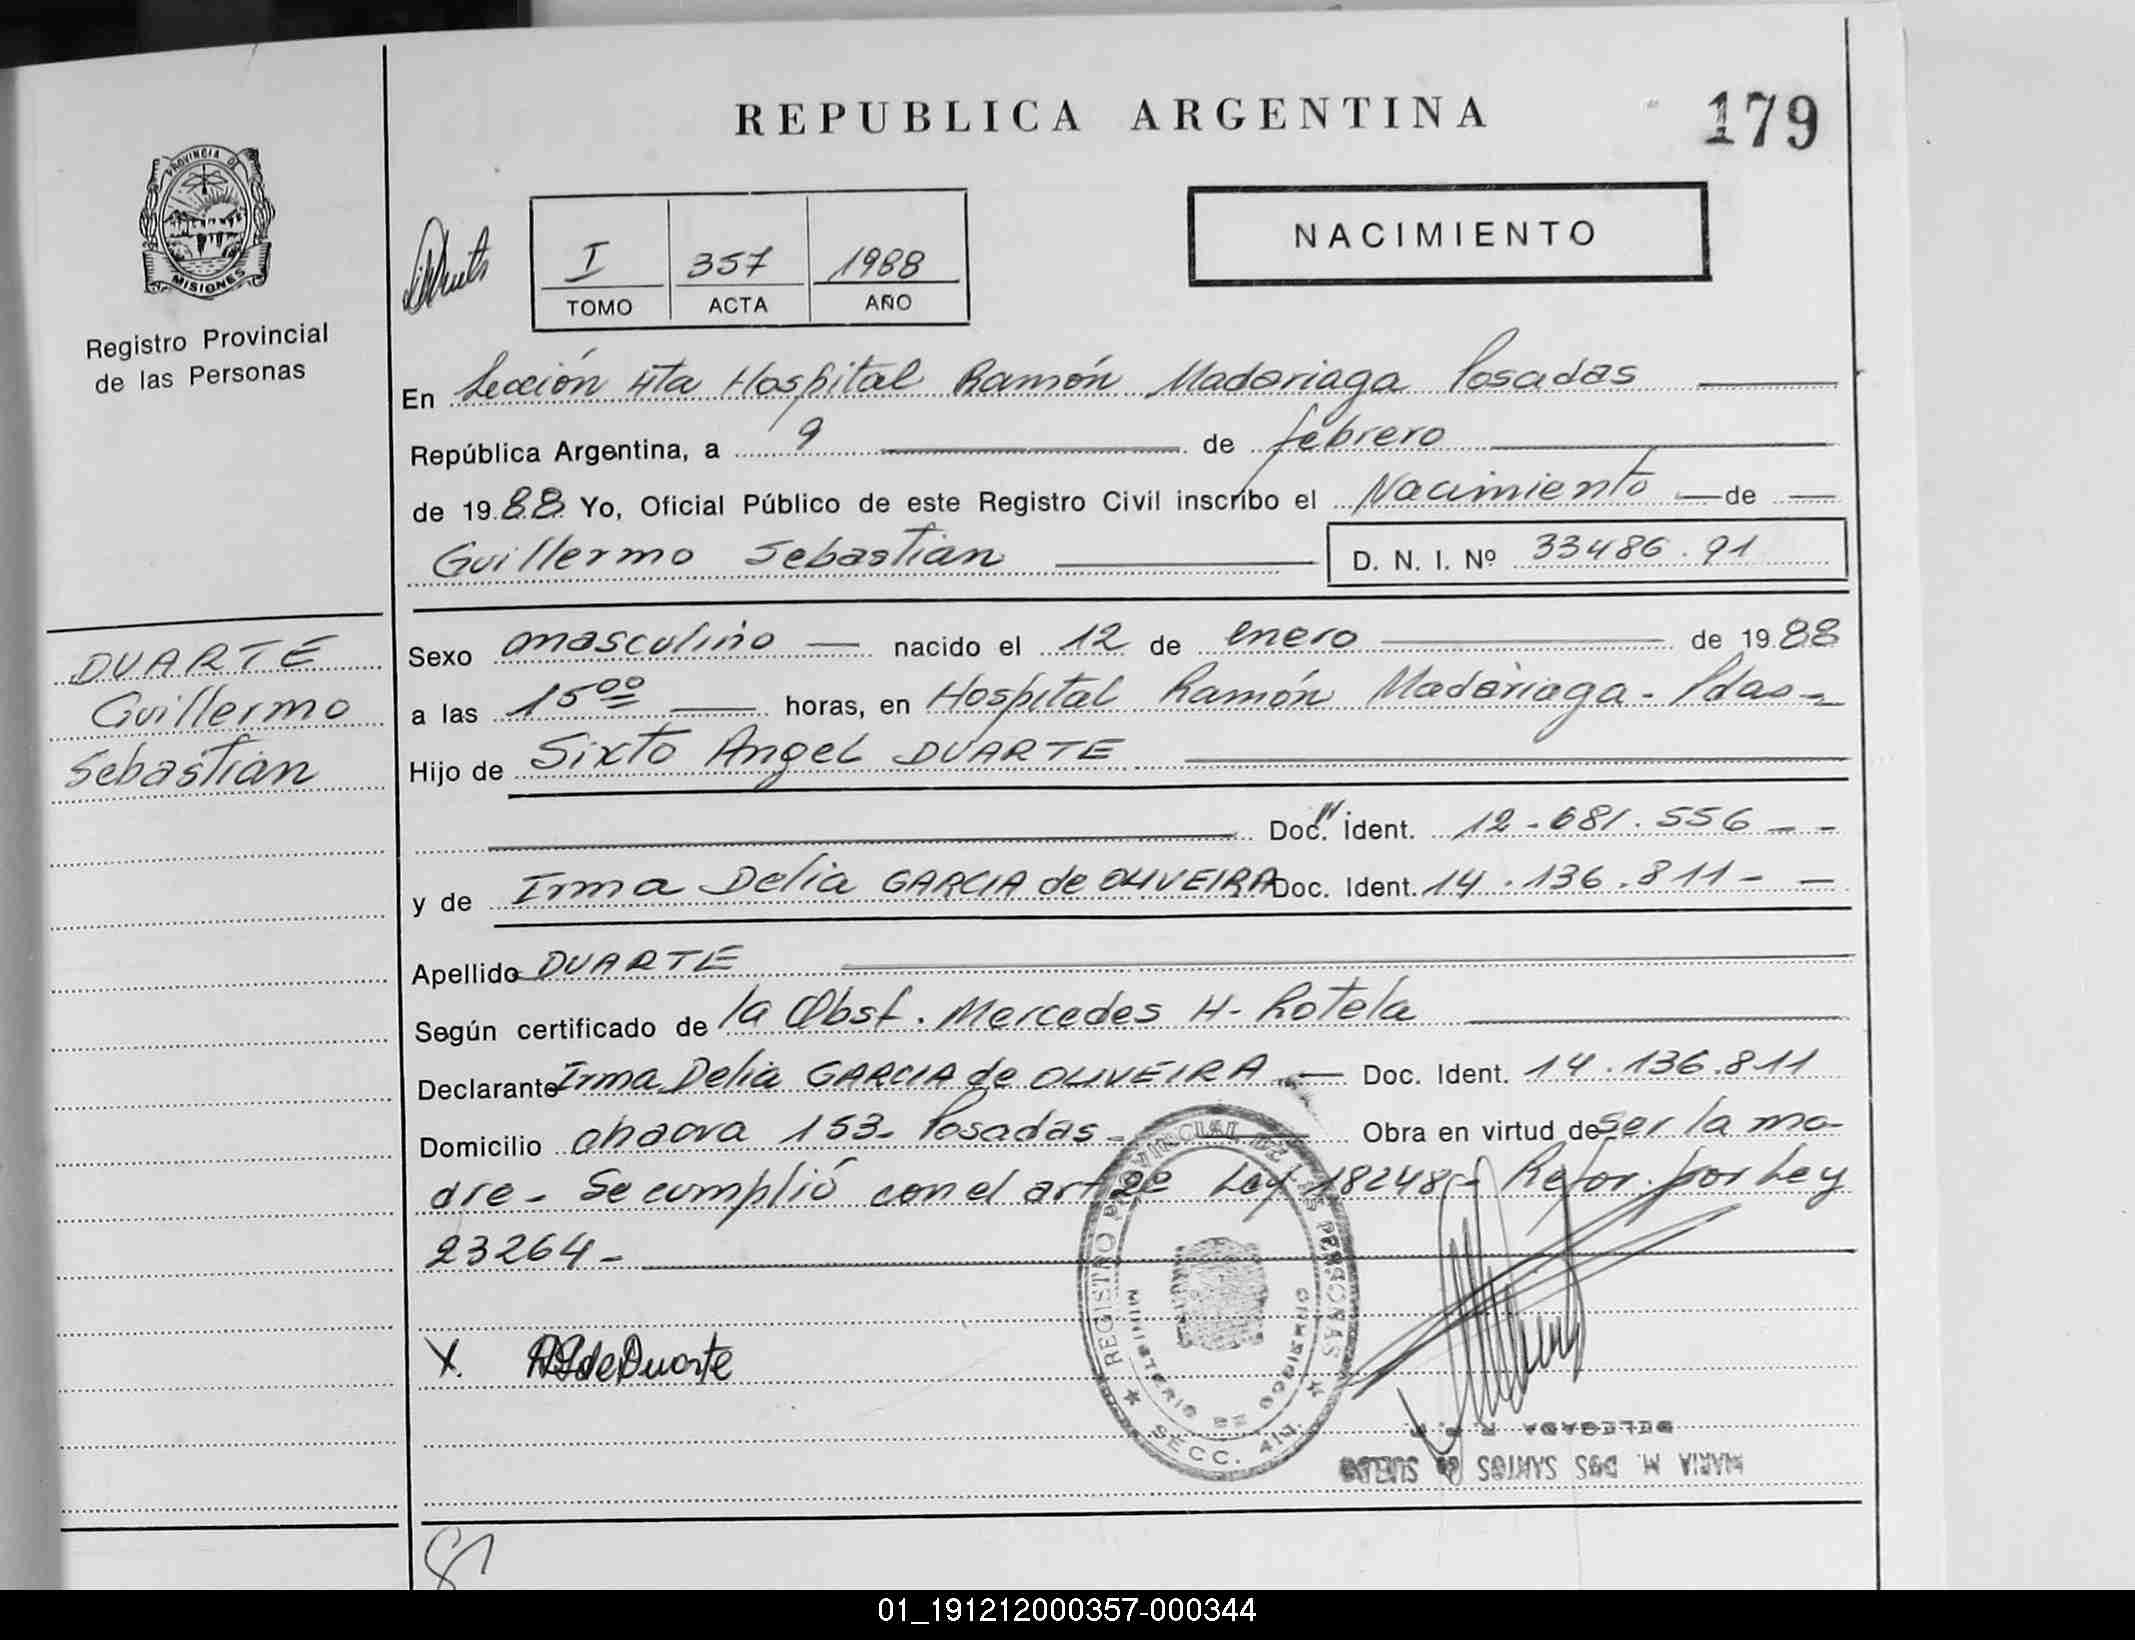 REPUBLICA ARGENTINA
179
PROVINCIA DE
MISIONES
Registro Provincial
de las Personas
I 357 1988
TOMO ACTA AÑO
NACIMIENTO
En Sección 4ta Hospital Ramón Madariaga Posadas
República Argentina, a 9 de febrero
de 1988 Yo, Oficial Público de este Registro Civil inscribo el Nacimiento de
Guillermo Sebastian D. N. I. Nº 33486.91
DUARTE
Guillermo
Sebastian
Sexo masculino nacido el 12 de enero de 1988
a las 15 00 horas, en Hospital Ramón Madariaga - Pdas -
Hijo de Sixto Angel DUARTE
Doc. Ident. 12.681.556
y de Irma Delia GARCIA de OLIVEIRA Doc. Ident. 14.136.811
Apellido DUARTE
Según certificado de la Obst. Mercedes H. Rotela
Declarante Irma Delia GARCIA de OLIVEIRA Doc. Ident. 14.136.811
Domicilio 153 - Posadas - Obra en virtud de ser la ma-
dre - Se cumplió con el art 2º Ley 18248 - Refor. por Ley
23264 -
X. de Duarte
REGISTRO PROVINCIAL DE LAS PERSONAS
MINISTERIO DE GOBIERNO
SECC. 4ta.
DELEGADA R. P. P.
MARIA M. DOS SANTOS de SUELDO
01_191212000357-000344